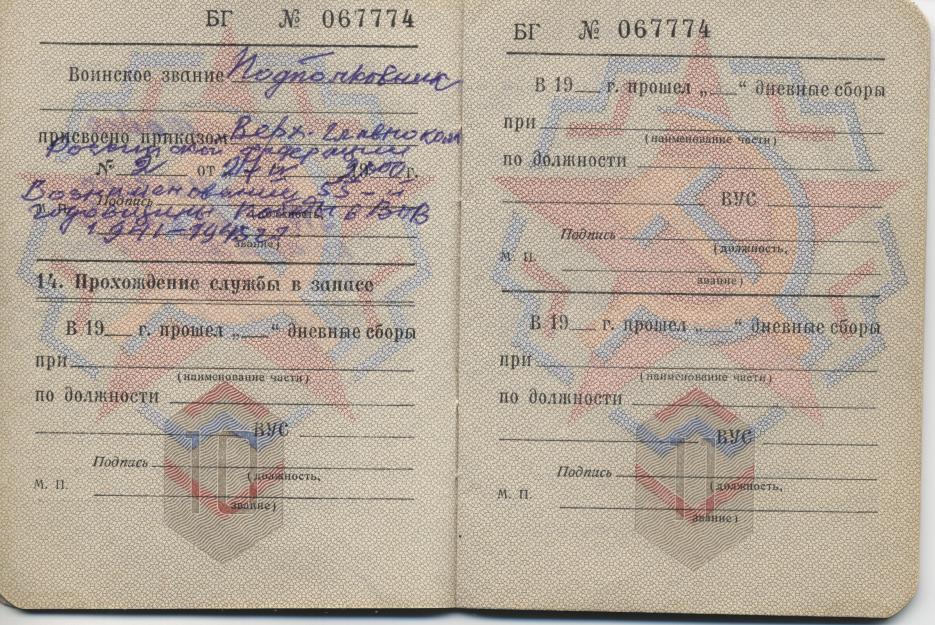 БГ № 067774
Воинское звание Подполковник
присвоено приказом Верх. Главноком
Российской Федерации
№ 2 от г.
В ознаменование 55-й
Подпись
годовщины в ВОВ
1941-1945
звание)
14. Прохождение службы в запасе
В 19__ г. прошел „__“ дневные сборы
при
(наименование части)
по должности
ВУС
Подпись
(должность,
М. П.
звание)
БГ № 067774
В 19__ г. прошел „__“ дневные сборы
при
(наименование части)
по должности
ВУС
Подпись
(должность,
М. П.
звание)
В 19__ г. прошел „__“ дневные сборы
при
(наименование части)
по должности
ВУС
Подпись
(должность,
М. П.
звание)